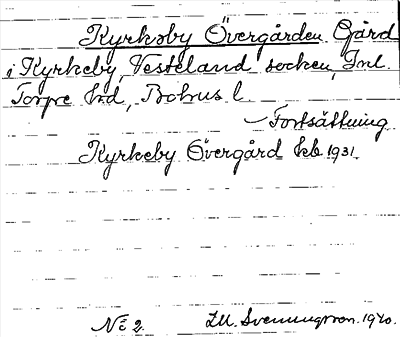 Kyrkeby Övergården Gård
i Kyrkeby, Vesteland socken, Inl.
Torpe hd, Bohus l.
— Fortsättning
Kyrkeby Övergård kb 1931.
No 2. J.M. Svenungsson. 1940.